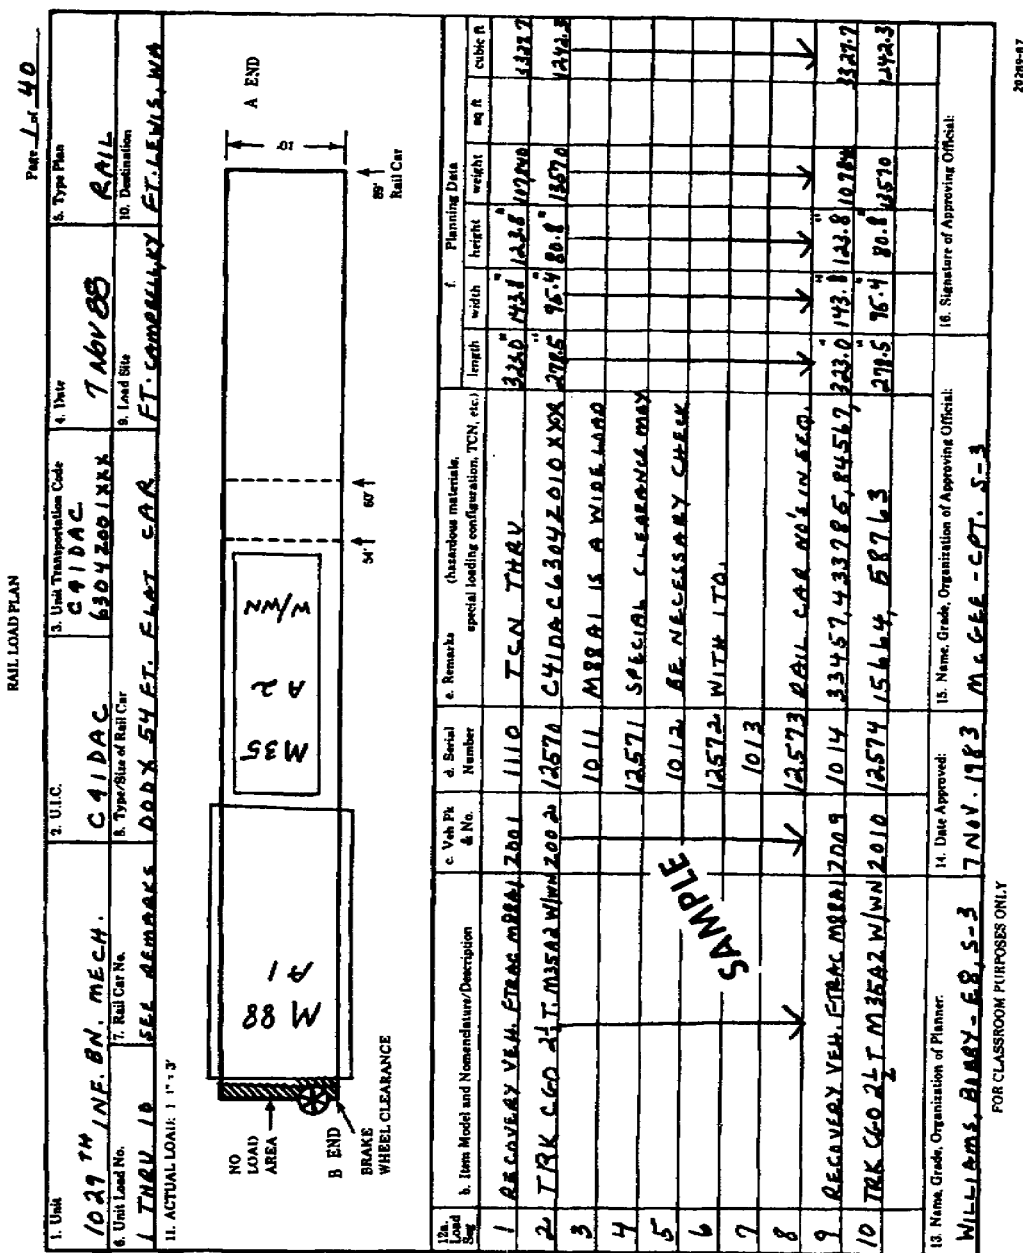 RAIL LOAD PLAN
Page 1 of 40
1. Unit
1029 TH INF. BN. MECH.
2. U.I.C.
C 41DAC
3. Unit Transportation Code
C 41DAC
6304 2001XXX
4. Date
7 NOV 88
5. Type Plan
RAIL
6. Unit Load No.
1 THRU 10
7. Rail Car No.
SEE REMARKS
8. Type/Size of Rail Car
DODX 54 FT. FLAT CAR
9. Load Site
FT. CAMPBELL, KY
10. Destination
FT. LEWIS, WA
11. ACTUAL LOAD: 1 1" = 3'
NO
LOAD
AREA
B END
BRAKE
WHEEL CLEARANCE
M 88
A1
M35
A2
W/WN
54'
60'
89'
Rail Car
10'
A END
12a.
Load
Seg
b. Item Model and Nomenclature/Description
c. Veh Pk
& No.
d. Serial
Number
e. Remarks (hazardous materials,
special loading configuration, TCN, etc.)
f. Planning Data
length width height weight sq ft cubic ft
1 RECOVERY VEH. FTRAC M88A1 2001 1110 TCN THRU 323.0" 143.8" 123.8" 107840 3327.7
2 TRK CGO 2½ T. M35A2 W/WN 2002 12570 C41DAC63042010XXX 278.5" 95.4" 80.8" 13570 1242.3
3 1011 M88A1 IS A WIDE LOAD
4 12571 SPECIAL CLEARANCE MAY
5 1012 BE NECESSARY CHECK
6 12572 WITH ITO.
7 1013
8 12573 RAIL CAR NO'S IN SEQ.
9 RECOVERY VEH. FTRAC M88A1 2009 1014 33457, 433785, 84567, 323.0" 143.8" 123.8" 10784 3327.7
10 TRK CGO 2½ T M35A2 W/WN 2010 12574 15664, 58763 278.5 95.4" 80.8" 13570 1242.3
SAMPLE
13. Name, Grade, Organization of Planner:
WILLIAMS, BOBBY - E8, S-3
14. Date Approved:
7 NOV. 1983
15. Name, Grade, Organization of Approving Official:
MCGEE - CPT. S-3
16. Signature of Approving Official:
FOR CLASSROOM PURPOSES ONLY
20289-87